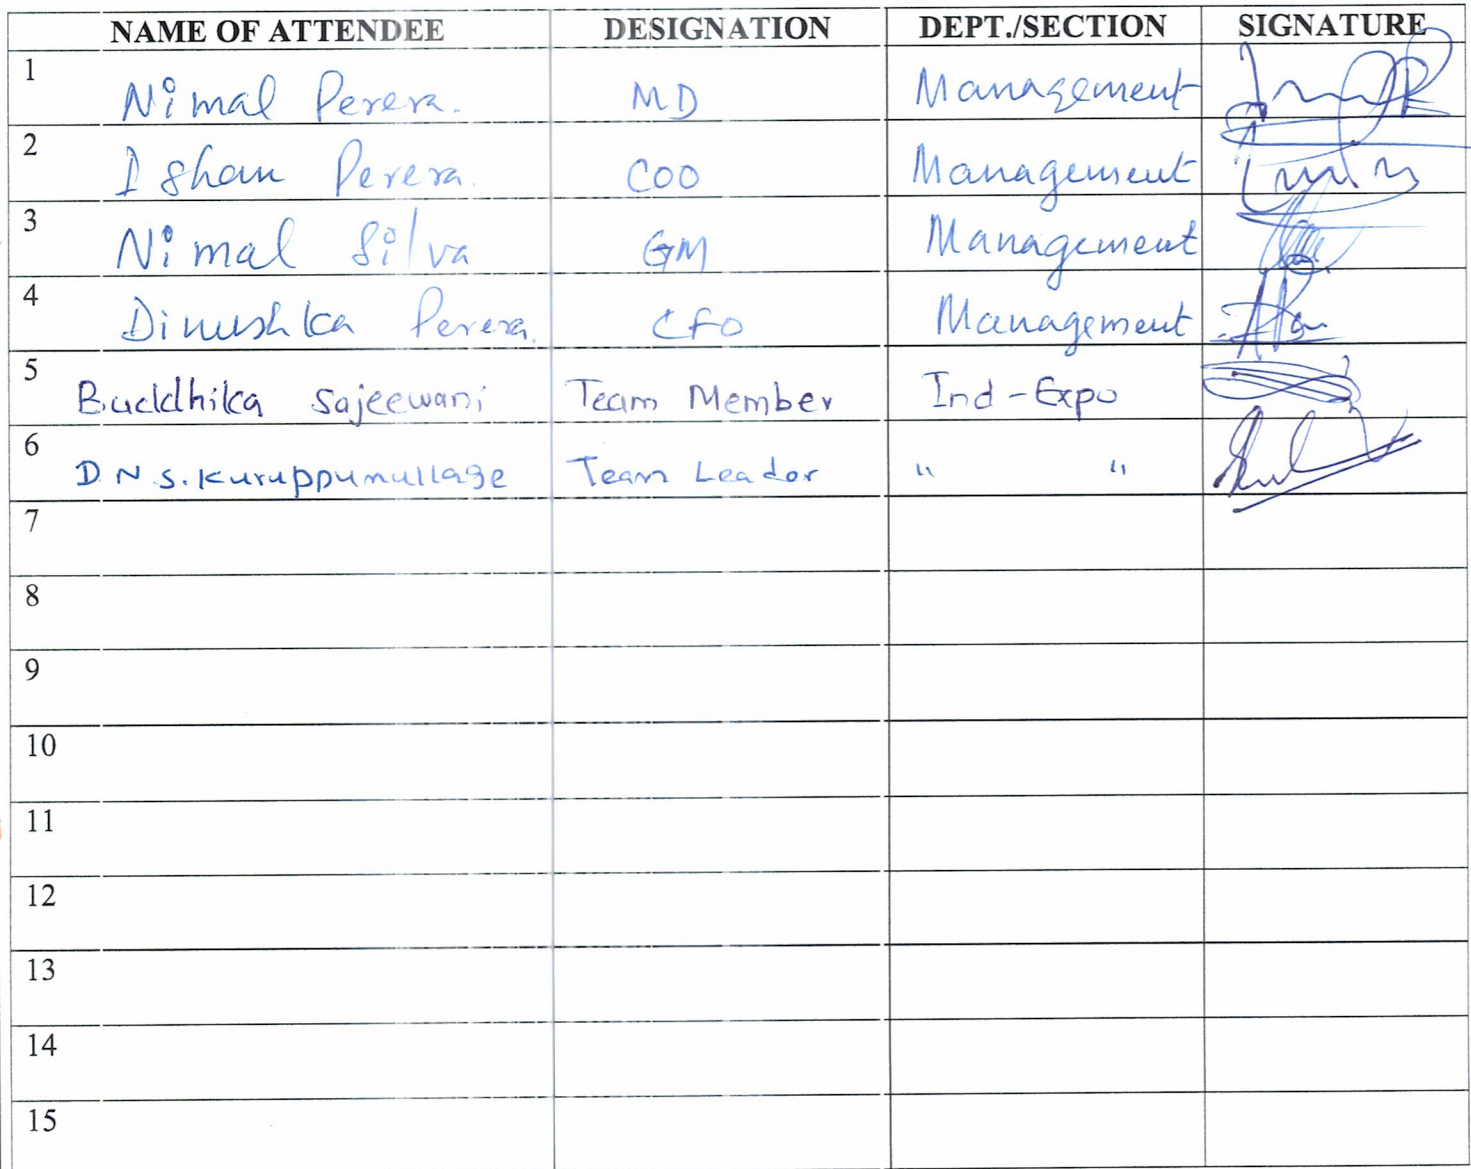 NAME OF ATTENDEE DESIGNATION DEPT./SECTION SIGNATURE
1 Nimal Perera. MD Management
2 Ishan Perera. COO Management
3 Nimal Silva GM Management
4 Dinushka Perera. CFO Management
5 Buddhika Sajeewani Team Member Ind-Expo
6 D N S. Kuruppumullage Team Leador " "
7
8
9
10
11
12
13
14
15